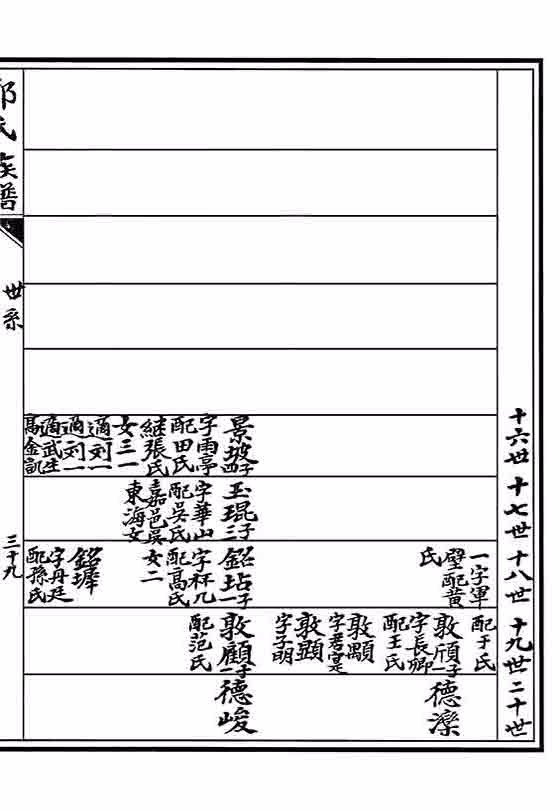 十六世
十七世
十八世
十九世
二十世
景坡子四
字雨亭
配田氏
継張氏
女三一
適刘一
適刘一
適武生
高金凱
玉琨子三
字華山
配吳氏
嘉邑吳
東海女
一字軍
璧配黄
氏
鉊坫子一
字杯九
配高氏
女二
鉊
字丹廷
配孫氏
配于氏
敦頎子一
字長卿
配王氏
敦顒
字君寔
敦顕
字子明
敦顧子一
配范氏
德濼
德峻
氏族譜
世系
三十九